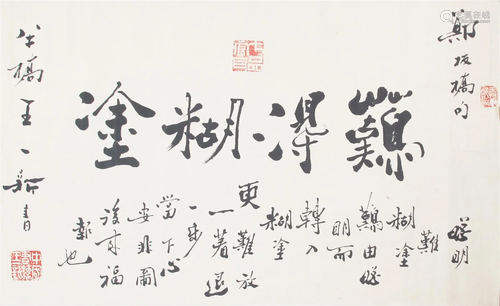 鄭板橋句
難得糊塗
聰明
難
糊塗
難由聰
明而
轉入
糊塗
更難放
一著退
一步
當下心
安非圖
後來福
報也
橋王一書